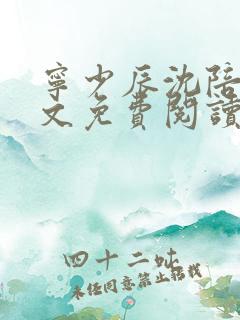 寧少辰沈陪
文免費閱讀
四十二吠
未经同意禁止转载